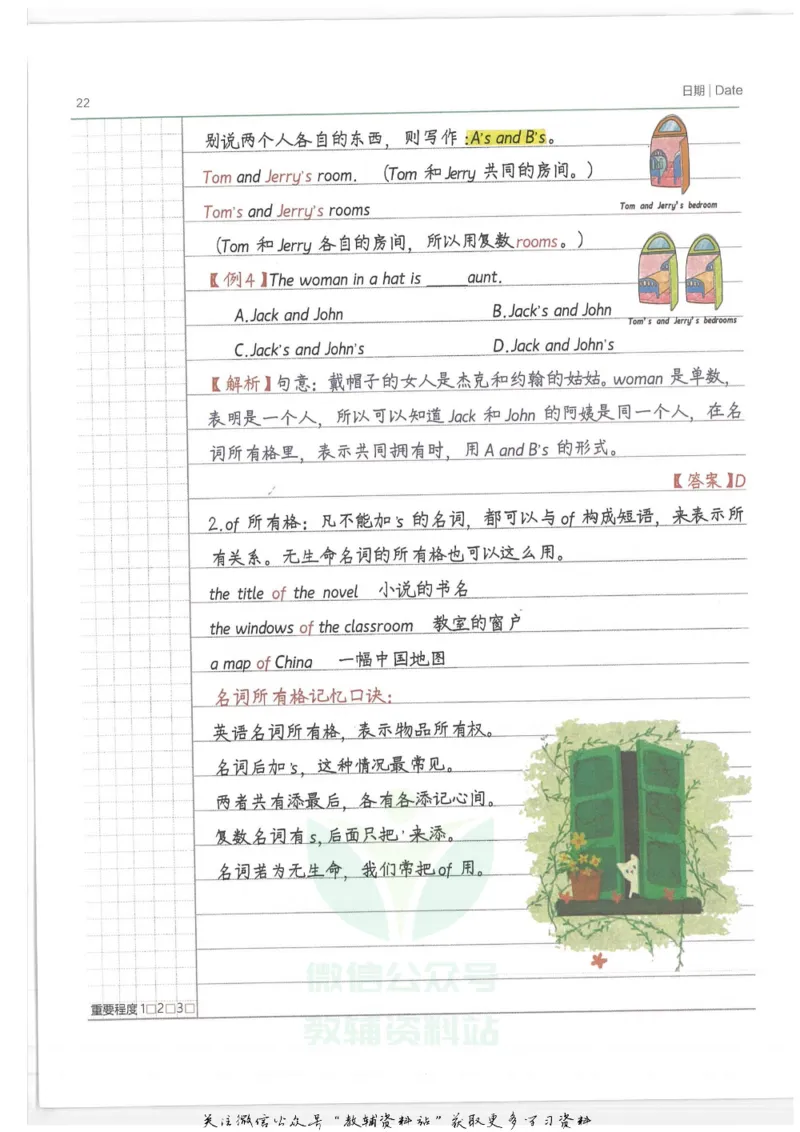 22
日期 | Date
别说两个人各自的东西，则写作：A's and B's。
Tom and Jerry's room. （Tom 和 Jerry 共同的房间。）
Tom and Jerry's bedroom
Tom's and Jerry's rooms
（Tom 和 Jerry 各自的房间，所以用复数rooms。）
【例4】The woman in a hat is _____aunt.
A.Jack and John B.Jack's and John
Tom's and Jerry's bedrooms
C.Jack's and John's D.Jack and John's
【解析】句意：戴帽子的女人是杰克和约翰的姑姑。woman 是单数，
表明是一个人，所以可以知道 Jack 和 John 的阿姨是同一个人，在名
词所有格里，表示共同拥有时，用 A and B's 的形式。
【答案】D
2.of 所有格：凡不能加's 的名词，都可以与 of 构成短语，来表示所
有关系。无生命名词的所有格也可以这么用。
the title of the novel 小说的书名
the windows of the classroom 教室的窗户
a map of China 一幅中国地图
名词所有格记忆口诀：
英语名词所有格，表示物品所有权。
名词后加's，这种情况最常见。
两者共有添最后，各有各添记心间。
复数名词有s,后面只把'来添。
名词若为无生命，我们常把of 用。
微信公众号
教辅资料站
重要程度 1□2□3□
关注微信公众号“教辅资料站”获取更多学习资料